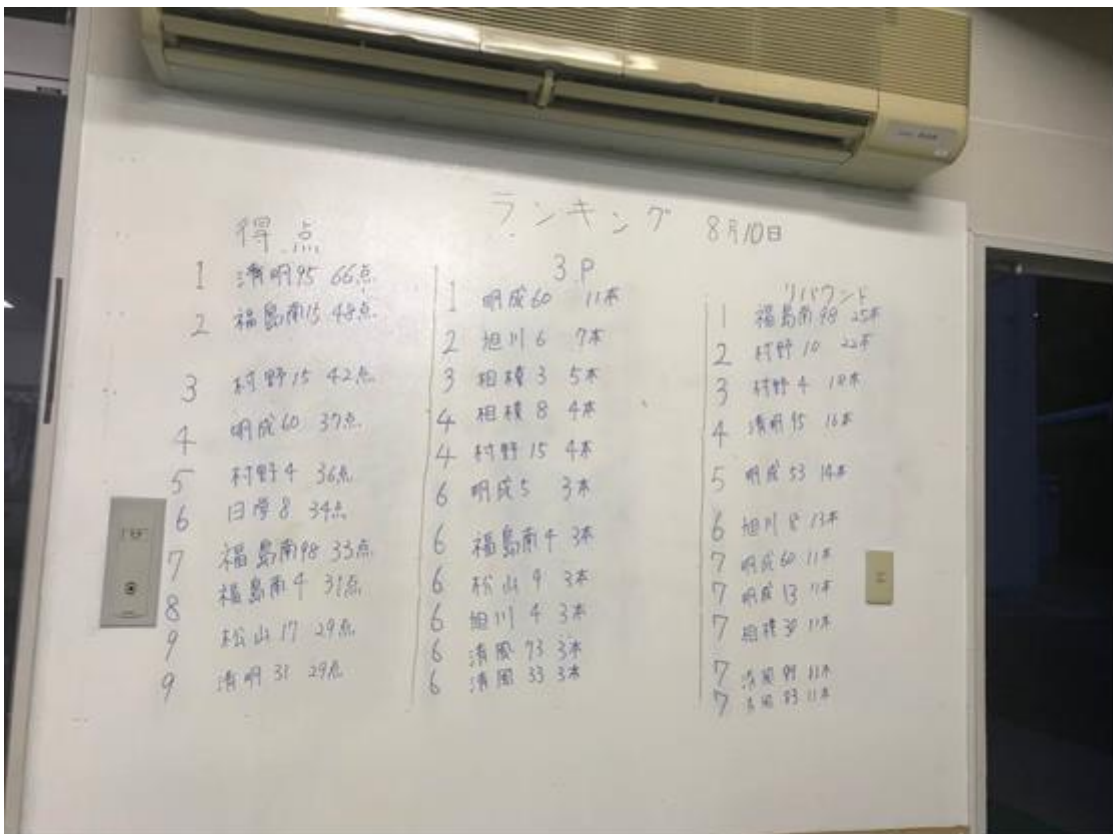 ランキング 8月10日
得点
1 清明95 66点
2 福島南15 48点
3 村野15 42点
4 明成60 37点
5 村野4 36点
6 日学8 34点
7 福島南98 33点
8 福島南4 31点
9 松山17 29点
9 清明31 29点
3P
1 明成60 11本
2 旭川6 7本
3 相模3 5本
4 相模8 4本
4 村野15 4本
6 明成5 3本
6 福島南4 3本
6 松山9 3本
6 旭川4 3本
6 清風73 3本
6 清風33 3本
リバウンド
1 福島南98 25本
2 村野10 22本
3 村野4 18本
4 清明95 16本
5 明成53 14本
6 旭川8 13本
7 明成60 11本
7 明成13 11本
7 相模30 11本
7 清風99 11本
7 清風83 11本